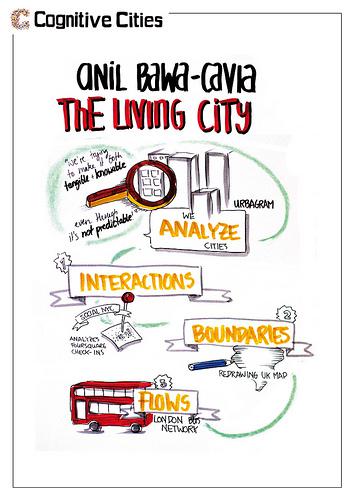 Cognitive Cities
ANIL BAWA-CAVIA
THE LIVING CITY
"we're trying
to make it both
tangible + knowable
even though
it's not predictable"
URBAGRAM
WE
ANALYZE
CITIES
1
INTERACTIONS
SOCIAL NYC
ANALYZES
FOURSQUARE
CHECK-INS
2
BOUNDARIES
REDRAWING UK MAP
3
FLOWS
LONDON BUS
NETWORK